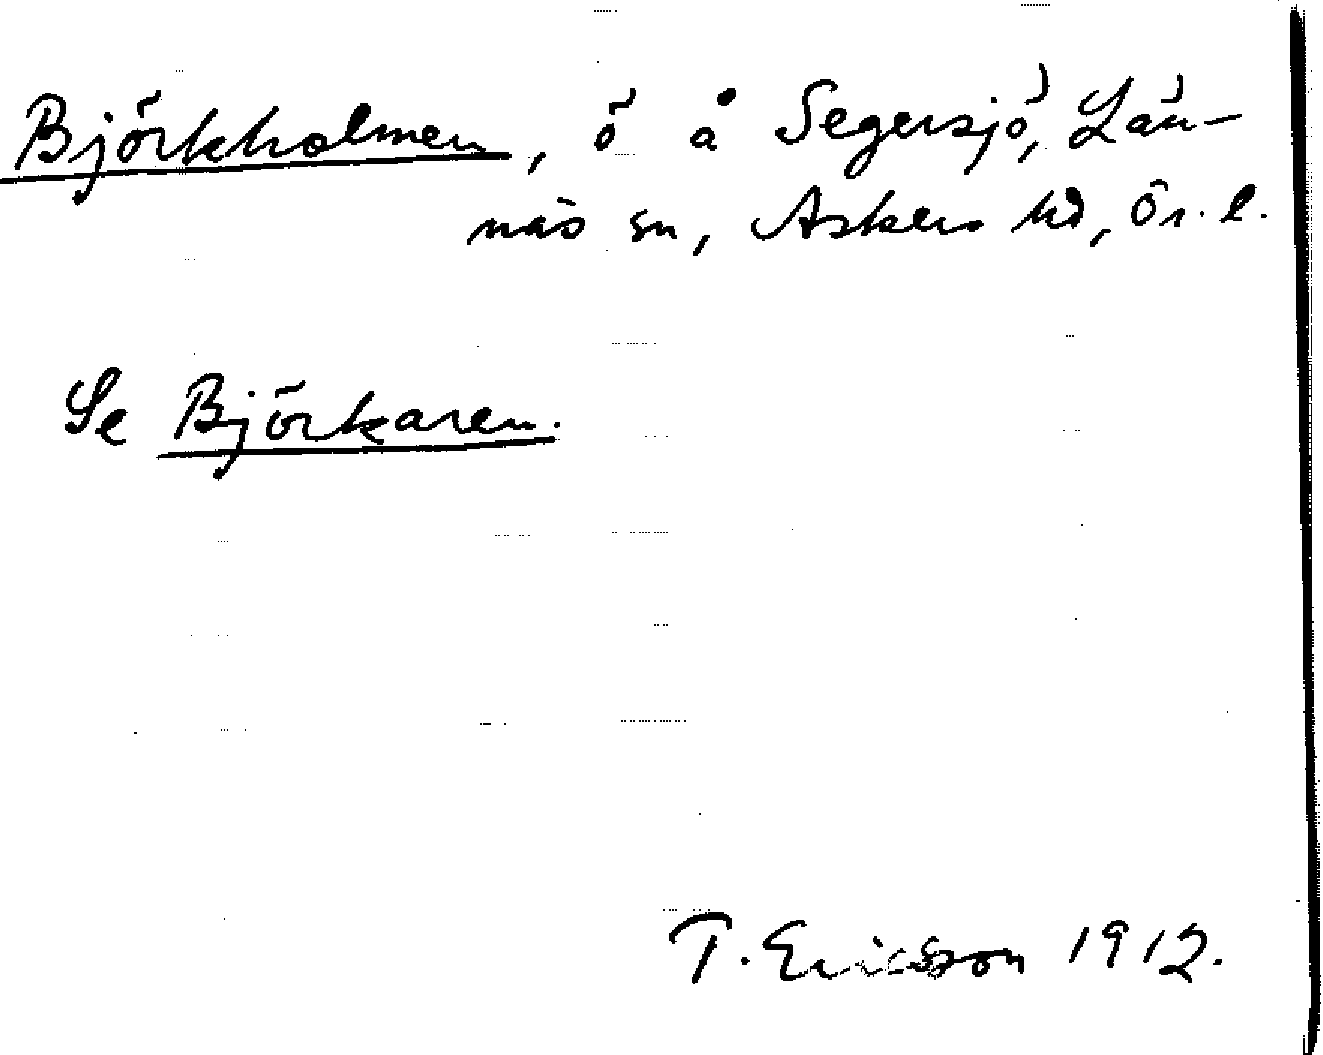 Björkholmen, ö å Segersjö, Län-
näs sn, Askers hd, Ör. l.
Se Björkaren.
T. Ericsson 1912.